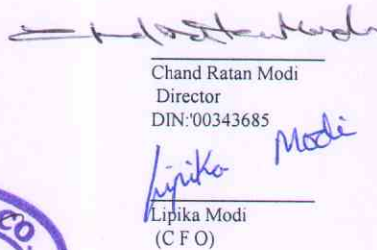 Chand Ratan Modi
Director
DIN:'00343685
Lipika Modi
Lipika Modi
(C F O)
CO.